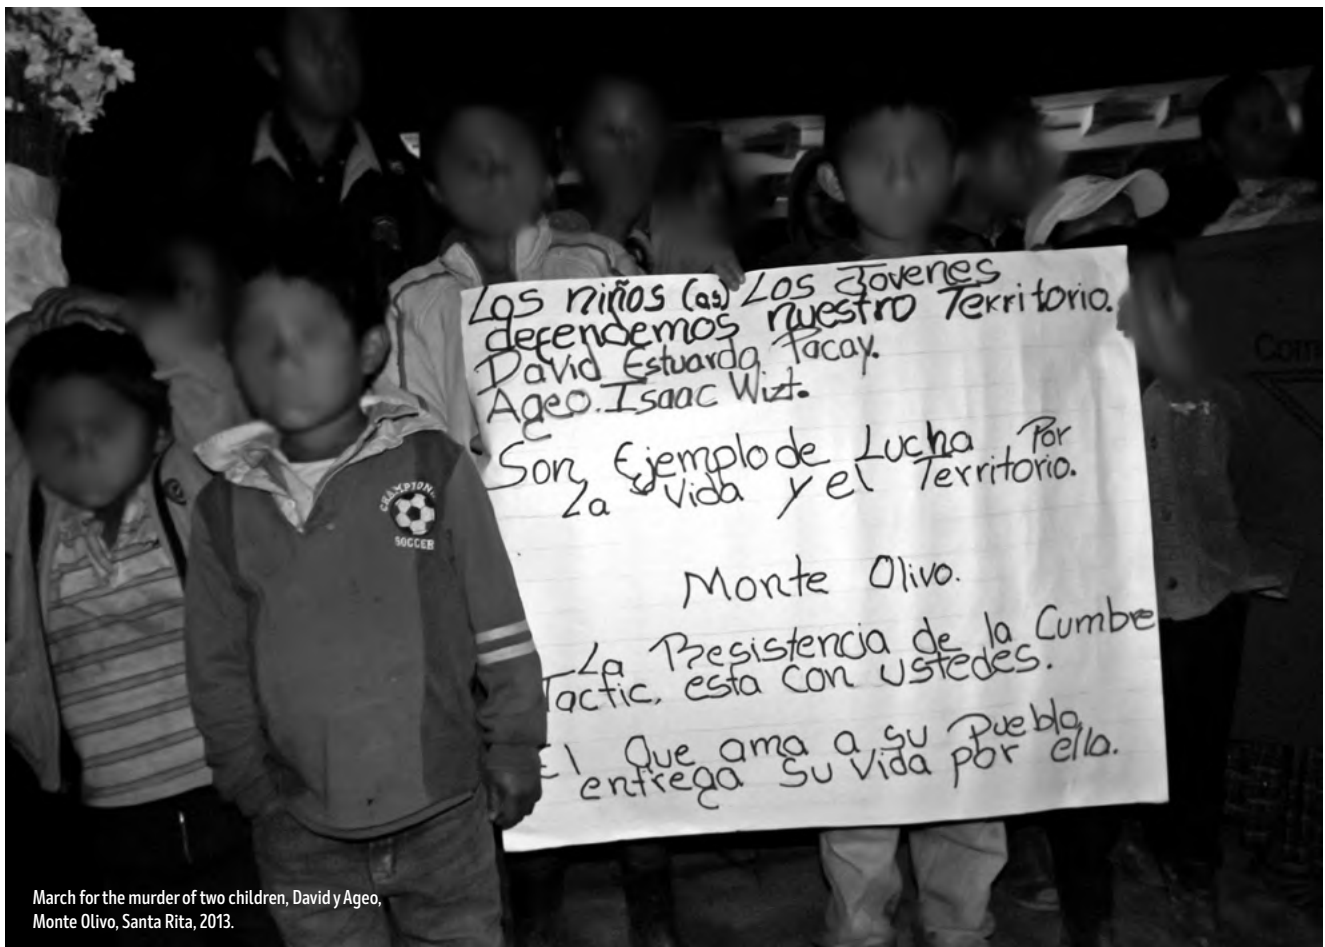 Los niños (as) Los Jovenes
defendemos nuestro Territorio.
David Estuardo Pacay.
Ageo. Isaac Wizt.
Son Ejemplo de Lucha Por
La Vida y el Territorio.
Monte Olivo.
La Resistencia de la Cumbre
Tactic, esta con ustedes.
El Que ama a su Pueblo
entrega su vida por ella.
CHAMPION
SOCCER
Com
March for the murder of two children, David y Ageo,
Monte Olivo, Santa Rita, 2013.